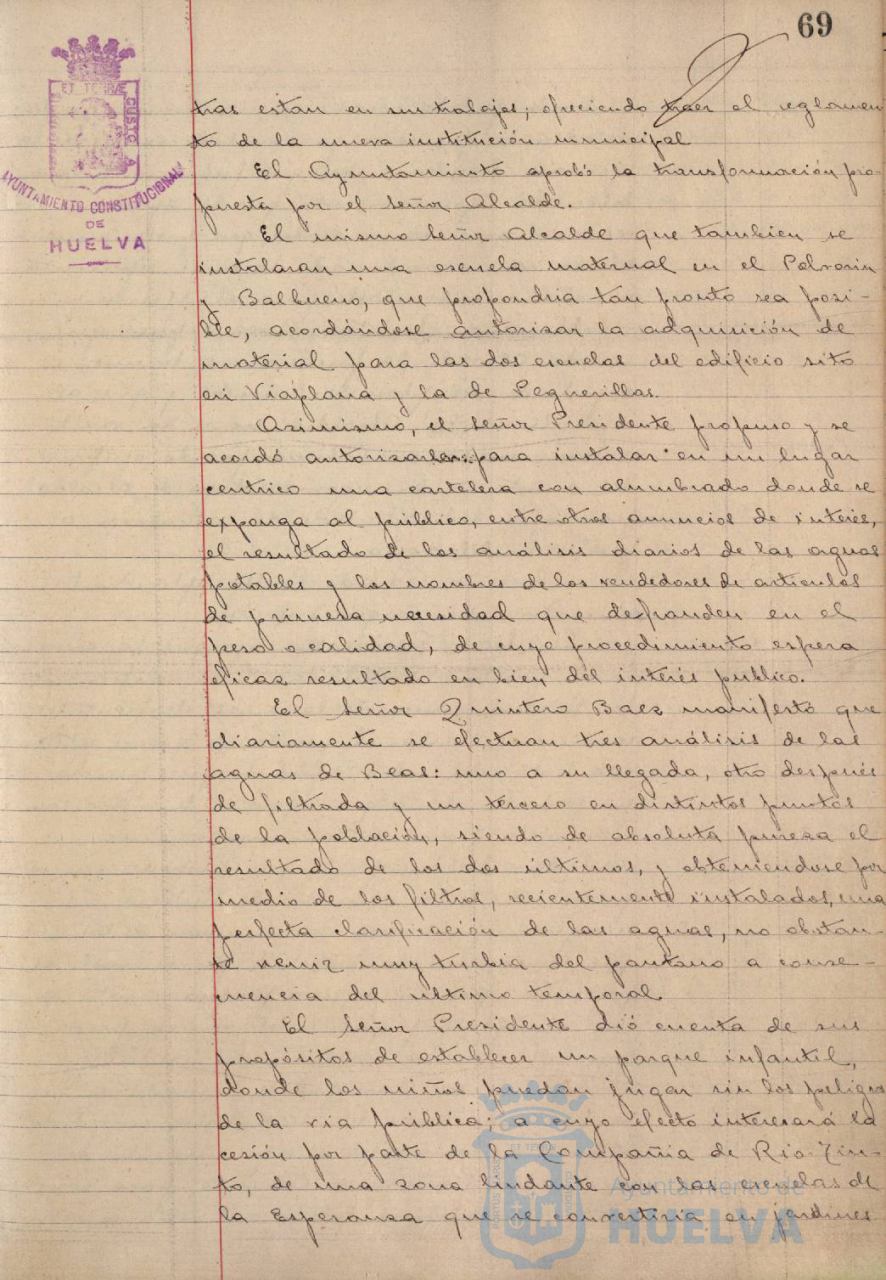 69
ET TERRÆ
CUSTOS
AYUNTAMIENTO CONSTITUCIONAL
DE
HUELVA
tras estan en sus trabajos; ofreciendo traer el reglamen
to de la nueva institución municipal
El Ayuntamiento aprobó la transformación pro-
puesta por el Señor Alcalde.
El mismo Señor Alcalde que tambien se
instalaran una escuela maternal en el Polvorin
y Balbueno, que propondria tan pronto sea posi-
ble, acordándose autorizar la adquisición de
material para las dos escuelas del edificio sito
en Viaplana y la de Peguerillas.
Asimismo, el Señor Presidente propuso y se
acordó para instalar en un lugar
centrico una cartelera con alumbrado donde se
exponga al público, entre otros anuncios de interés,
el resultado de los análisis diarios de las aguas
potables y los nombres de los vendedores de articulos
de primera necesidad que defrauden en el
peso o calidad, de cuyo procedimiento espera
eficaz resultado en bien del interés publico.
El Señor Quintero Baez manifestó que
diariamente se efectuan tres análisis de las
aguas de Beas: uno a su llegada, otro después
de filtrada y un tercero en distintos puntos
de la población, siendo de absoluta pureza el
resultado de los dos últimos, y obteniendose por
medio de los filtros, recientemente instalados, una
perfecta clarificación de las aguas, no obstan-
te venir muy turbia del pantano a conse-
cuencia del ultimo temporal.
El Señor Presidente dió cuenta de sus
propósitos de establecer un parque infantil,
donde los niños puedan jugar sin los peligros
de la via pública; a cuyo efecto interesará la
cesión por parte de la Compañia de Rio-Tin-
to, de una zona lindante con las escuelas de
la Esperanza que se convertiria en jardines
Ayuntamiento de
HUELVA